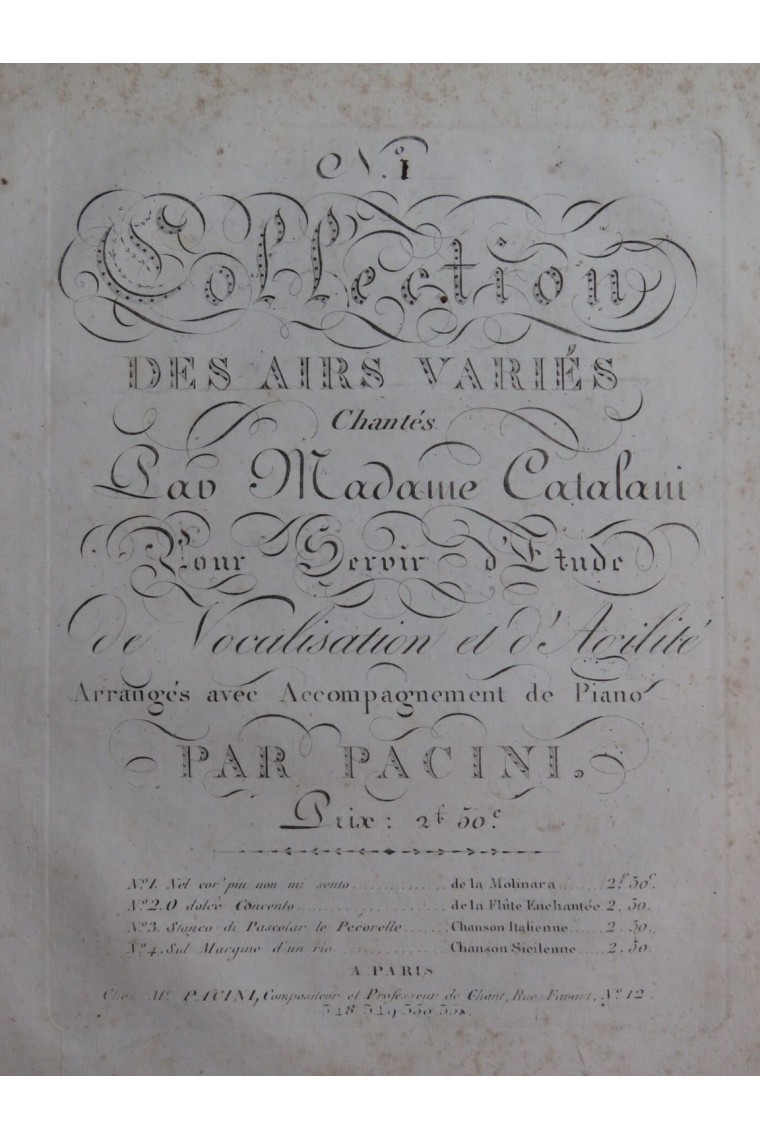 N.º 1
Collection
DES AIRS VARIÉS
Chantés
Par Madame Catalani
Pour Servir d'Etude
de Vocalisation et d'Agilité
Arrangés avec Accompagnement de Piano
PAR PACINI.
Prix: 2f 50c.
Nº 1. Nel cor' piu non mi sento ............... de la Molinara ....... 2f 50c.
Nº 2. O dolce Concento ............... de la Flûte Enchantée 2. 50.
Nº 3. Stanco di Pascolar le Pecorelle ....... Chanson Italienne ..... 2. 50.
Nº 4. Sul Margine d'un rio ............... Chanson Sicilenne ..... 2. 50
A PARIS
Chez Mr. PACINI, Compositeur et Professeur de Chant, Rue Favart, Nº 12.
548 549 550 551.